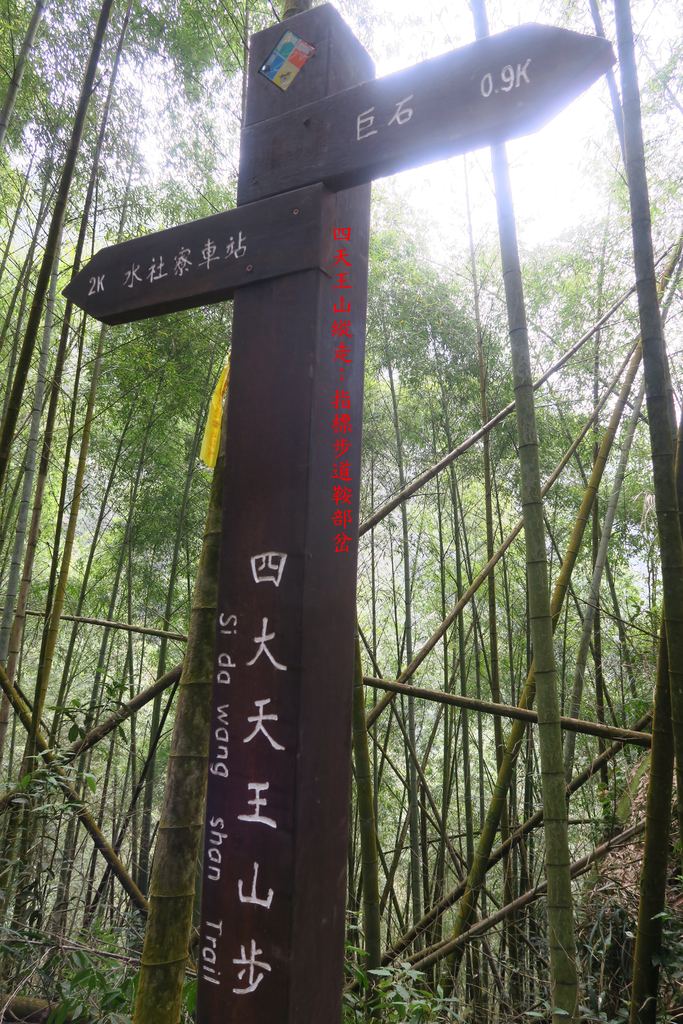 巨石 0.9K
2K 水社寮車站
四天王山縱走：指標步道鞍部岔
四大天王山步
Si da wang shan Trail